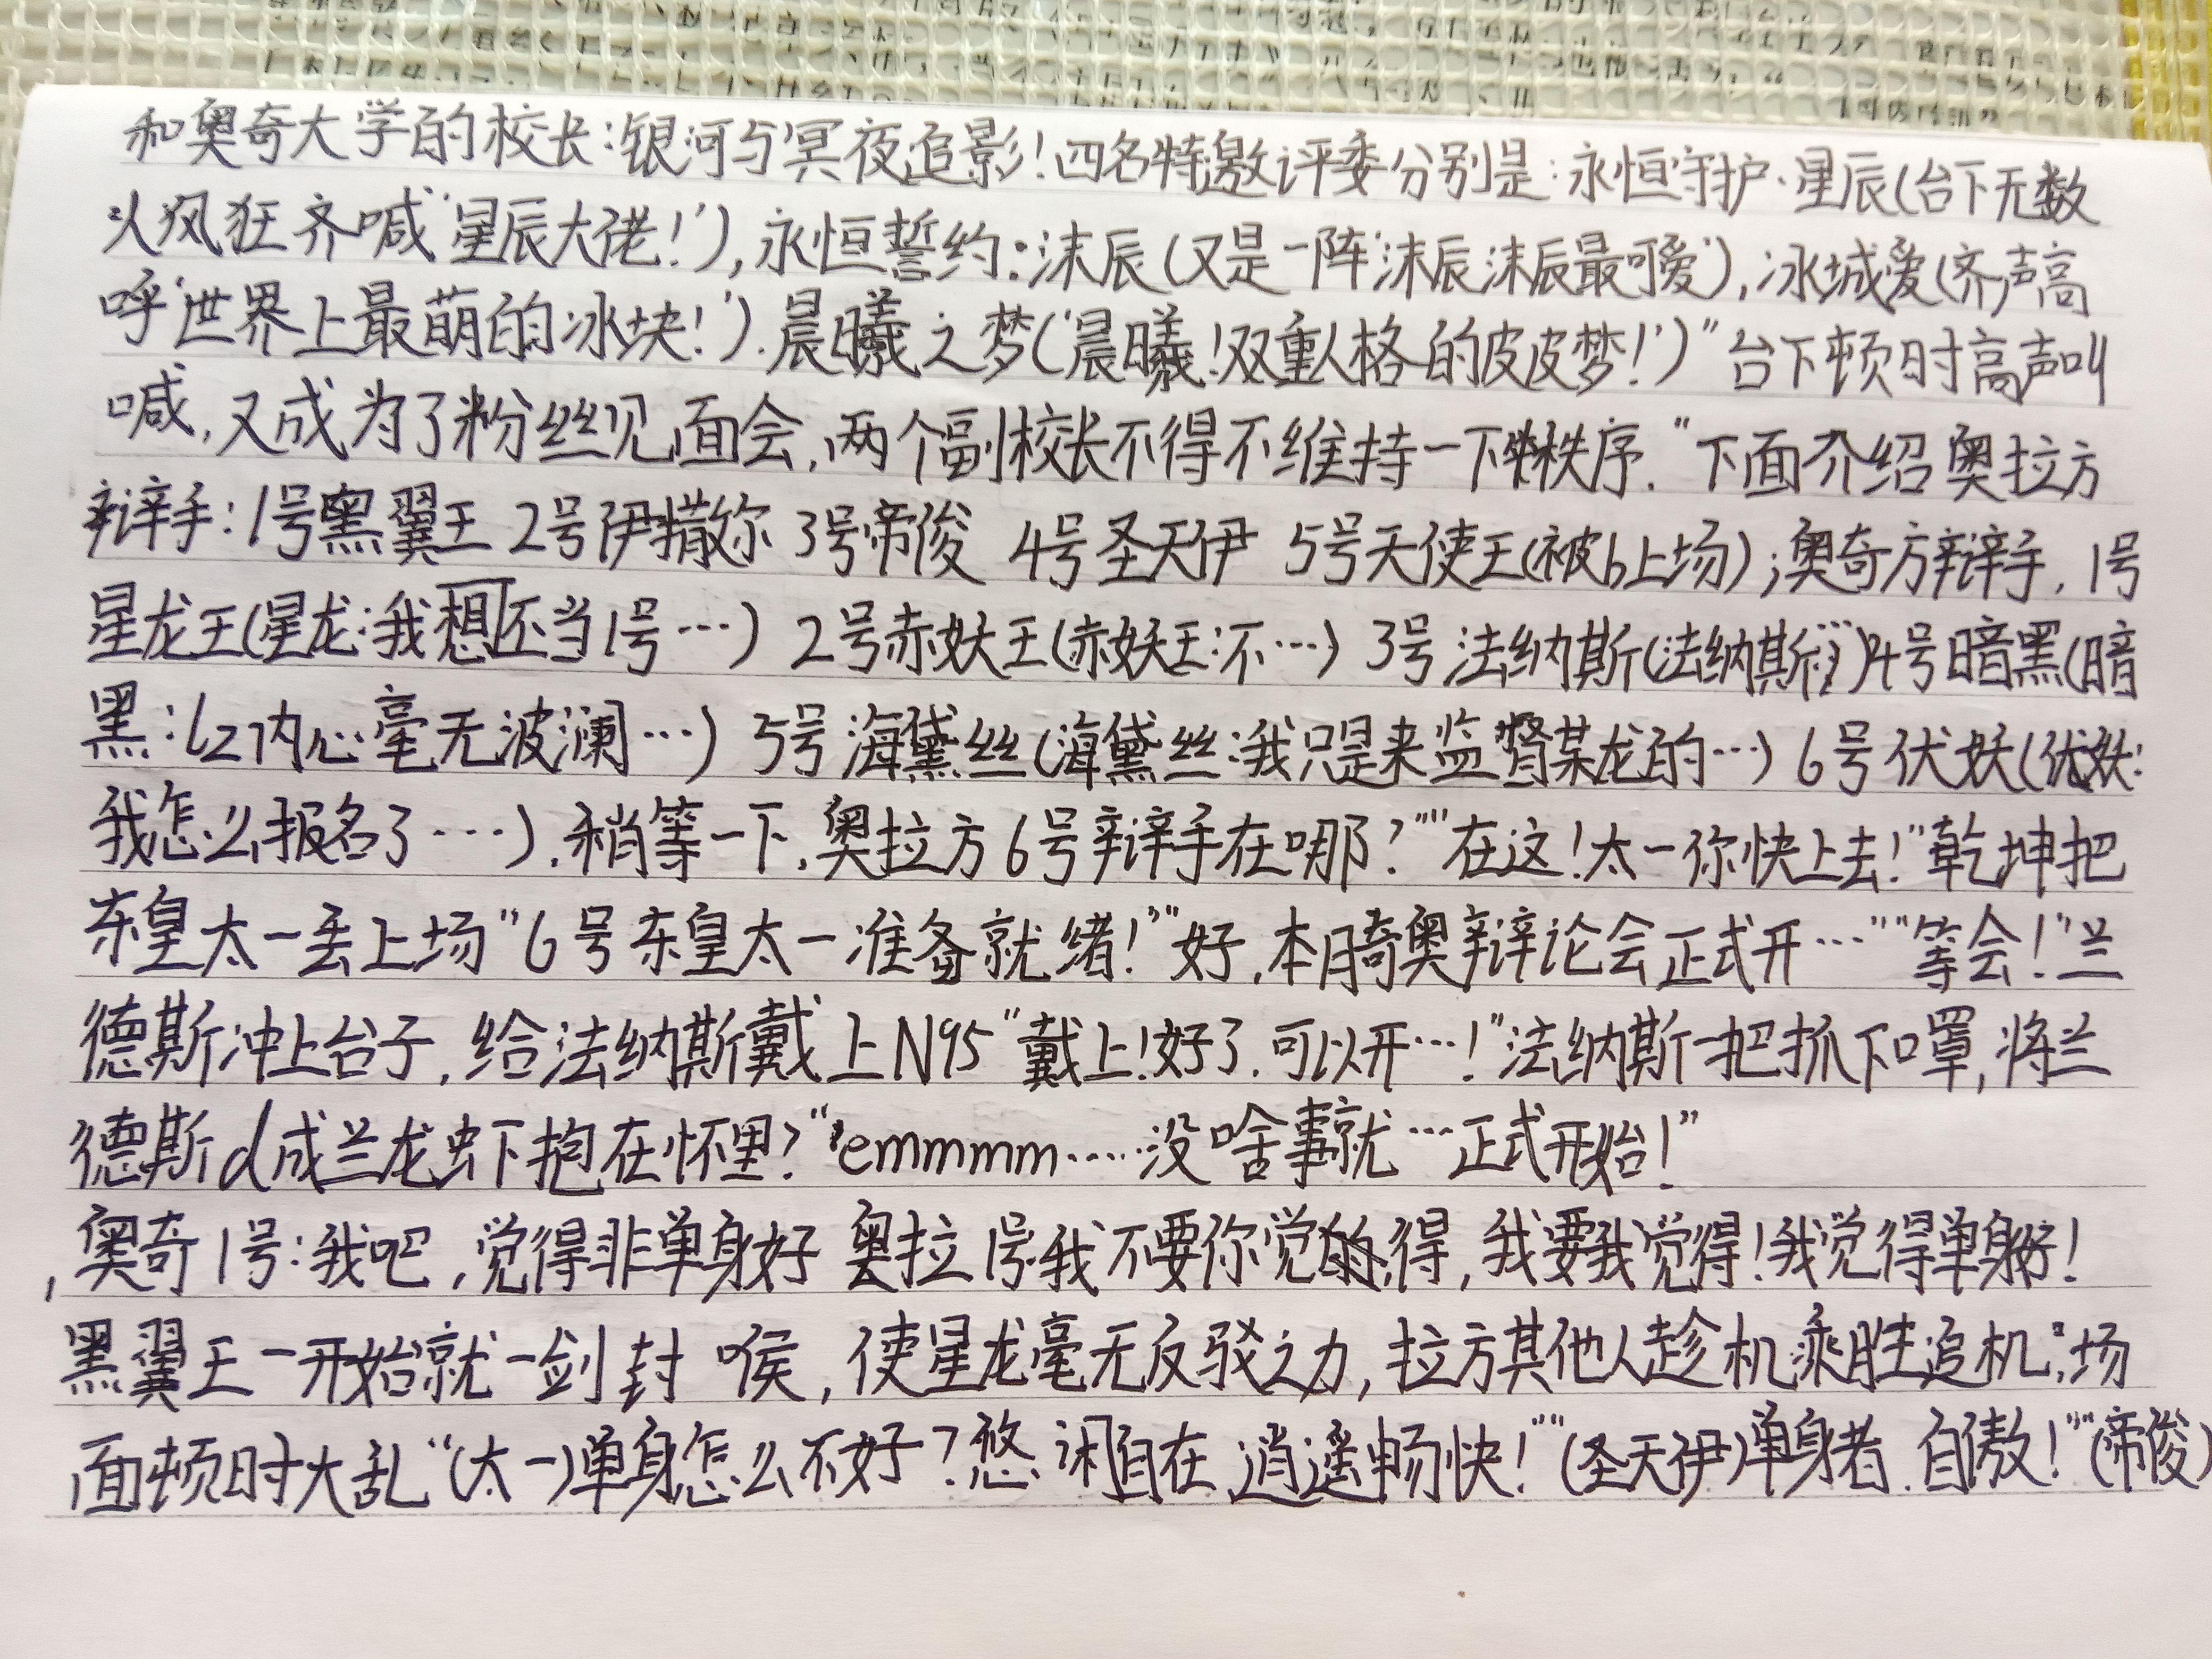 和奥奇大学的校长:银河与冥夜追影!四名特邀评委分别是:永恒守护·星辰(台下无数
人疯狂齐喊“星辰大佬!”),永恒誓约:沫辰(又是一阵“沫辰沫辰最可爱”),冰城爱(齐声高
呼“世界上最萌的冰块!”).晨曦之梦(“晨曦!双重人格的皮皮梦!”)”台下顿时高声叫
喊,又成为了粉丝见面会,两个副校长不得不维持一下秩序.“下面介绍奥拉方
辩手:1号黑翼王 2号伊撒尔 3号帝俊 4号圣天伊 5号天使王(被b上场);奥奇方辩手,1号
星龙王(星龙:我想不当1号…) 2号赤妖王(赤妖王:不…) 3号法纳斯(法纳斯:…)4号暗黑(暗
黑:lz内心毫无波澜…) 5号海黛丝(海黛丝:我只是来监督某龙的…) 6号伏妖(伏妖:
我怎么报名了…),稍等一下,奥拉方6号辩手在哪?”“在这!太一你快上去!”乾坤把
东皇太一丢上场“6号东皇太一准备就绪!”“好,本月奇奥辩论会正式开…”“等会!”兰
德斯冲上台子,给法纳斯戴上N95“戴上!好了.可以开…!”法纳斯一把抓下口罩,将兰
德斯d成兰龙虾抱在怀里?“emmmm……没啥事就…正式开始!”
,奥奇1号:我吧,觉得非单身好 奥拉1号:我不要你觉得,我要我觉得!我觉得单身好!
黑翼王一开始就一剑封喉,使星龙毫无反驳之力,拉方其他人趁机乘胜追机,场
面顿时大乱“(太一)单身怎么不好?悠闲自在,逍遥畅快!”“(圣天伊)单身者.自傲!”“(帝俊)